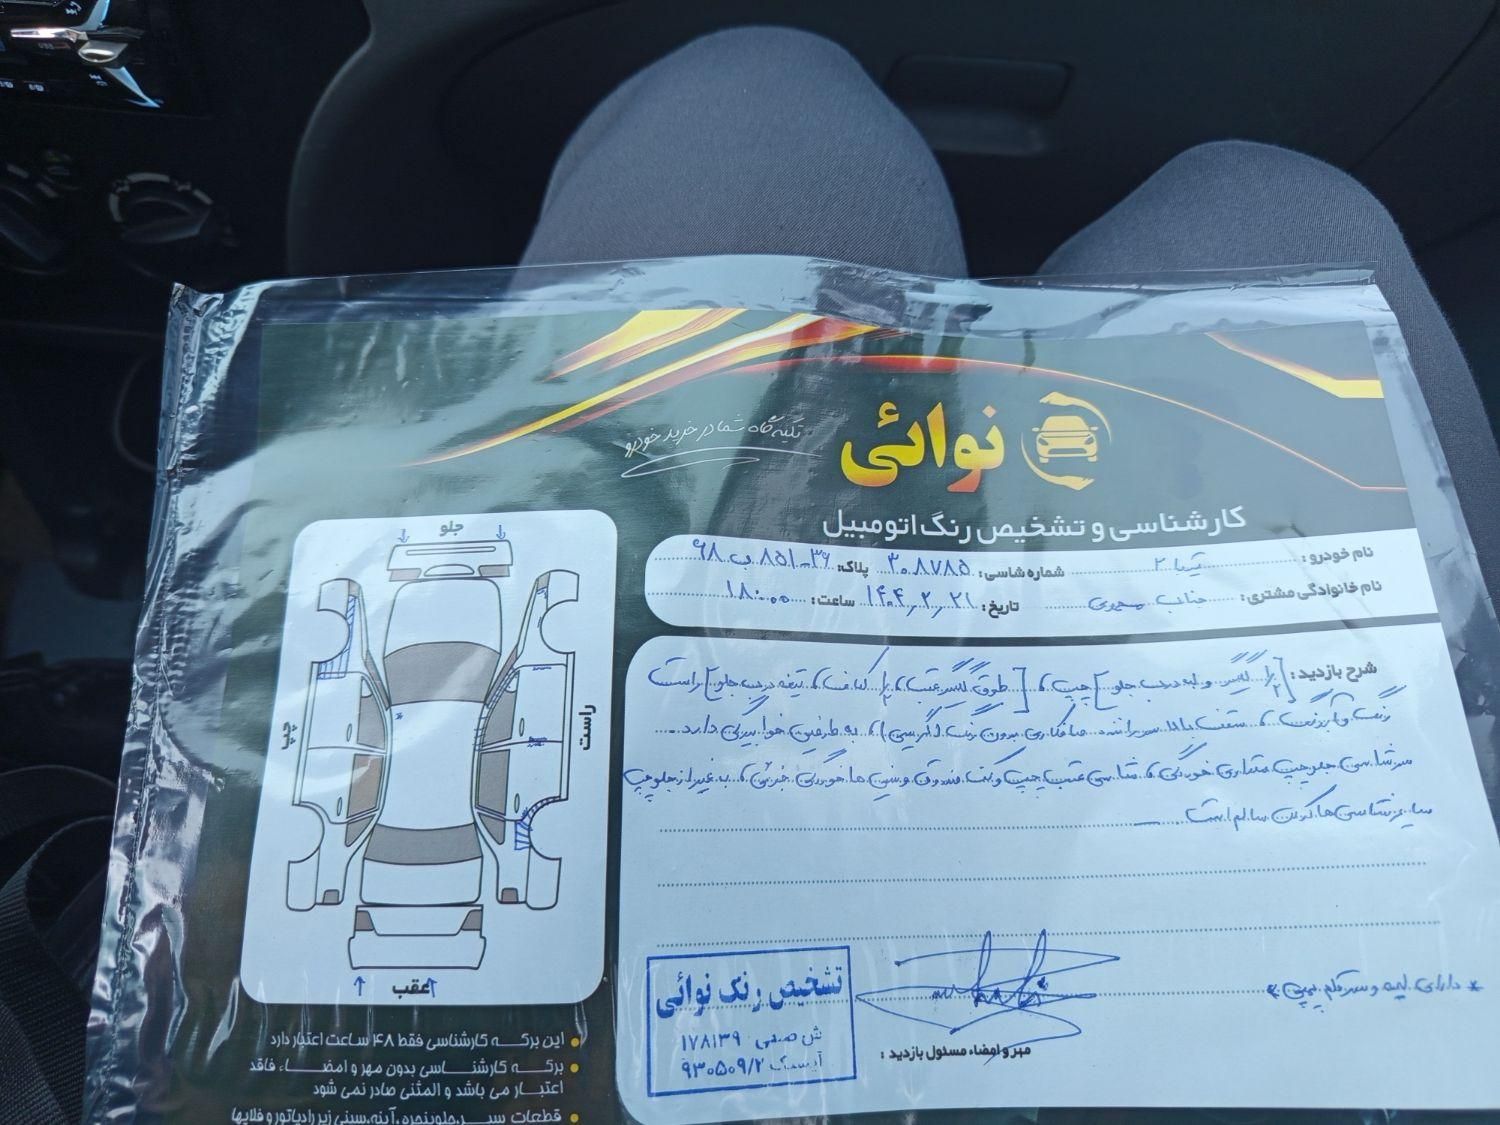 نوائی
تکیه گاه شما در خرید خودرو
کارشناسی و تشخیص رنگ اتومبیل
نام خودرو : تیبا ۲ شماره شاسی: ۳۰۸۷۸۵ پلاک: ۳۶-۸۵۱ ب ۶۸
نام خانوادگی مشتری: جناب تاریخ: ۱۴۰۴٫۲٫۲۱ ساعت: ۱۸:۰۰
شرح بازدید: [ ۱/۲ گلگیر و لبه درب جلو ] چپ، [ دور گلگیر عقب، کاف، تیغه درب جلو ] راست
رنگ ، سقف بالا سر راننده صافکاری بدون رنگ ( )، به طرفین هواگیری دارد
سرشاسی جلو چپ مقداری خوردگی، شاسی عقب چپ و کف صندوق و سینی ها خوردگی جزئی، به غیر از جلو چپ
سایر شاسی ها کرن سالم است
* دارای لیسه و سرقلم پمپی *
مهر و امضاء مسئول بازدید :
تشخیص رنگ نوائی
ش صنفی ۱۷۸۱۳۹
آیسیک ۹۳۰۵۰۹/۲
جلو
چپ
راست
عقب
این برگه کارشناسی فقط ۴۸ ساعت اعتبار دارد
برگه کارشناسی بدون مهر و امضاء فاقد
اعتبار می باشد و المثنی صادر نمی شود
قطعات سپر، جلوپنجره، آینه، سینی زیر رادیاتور و فلاپها